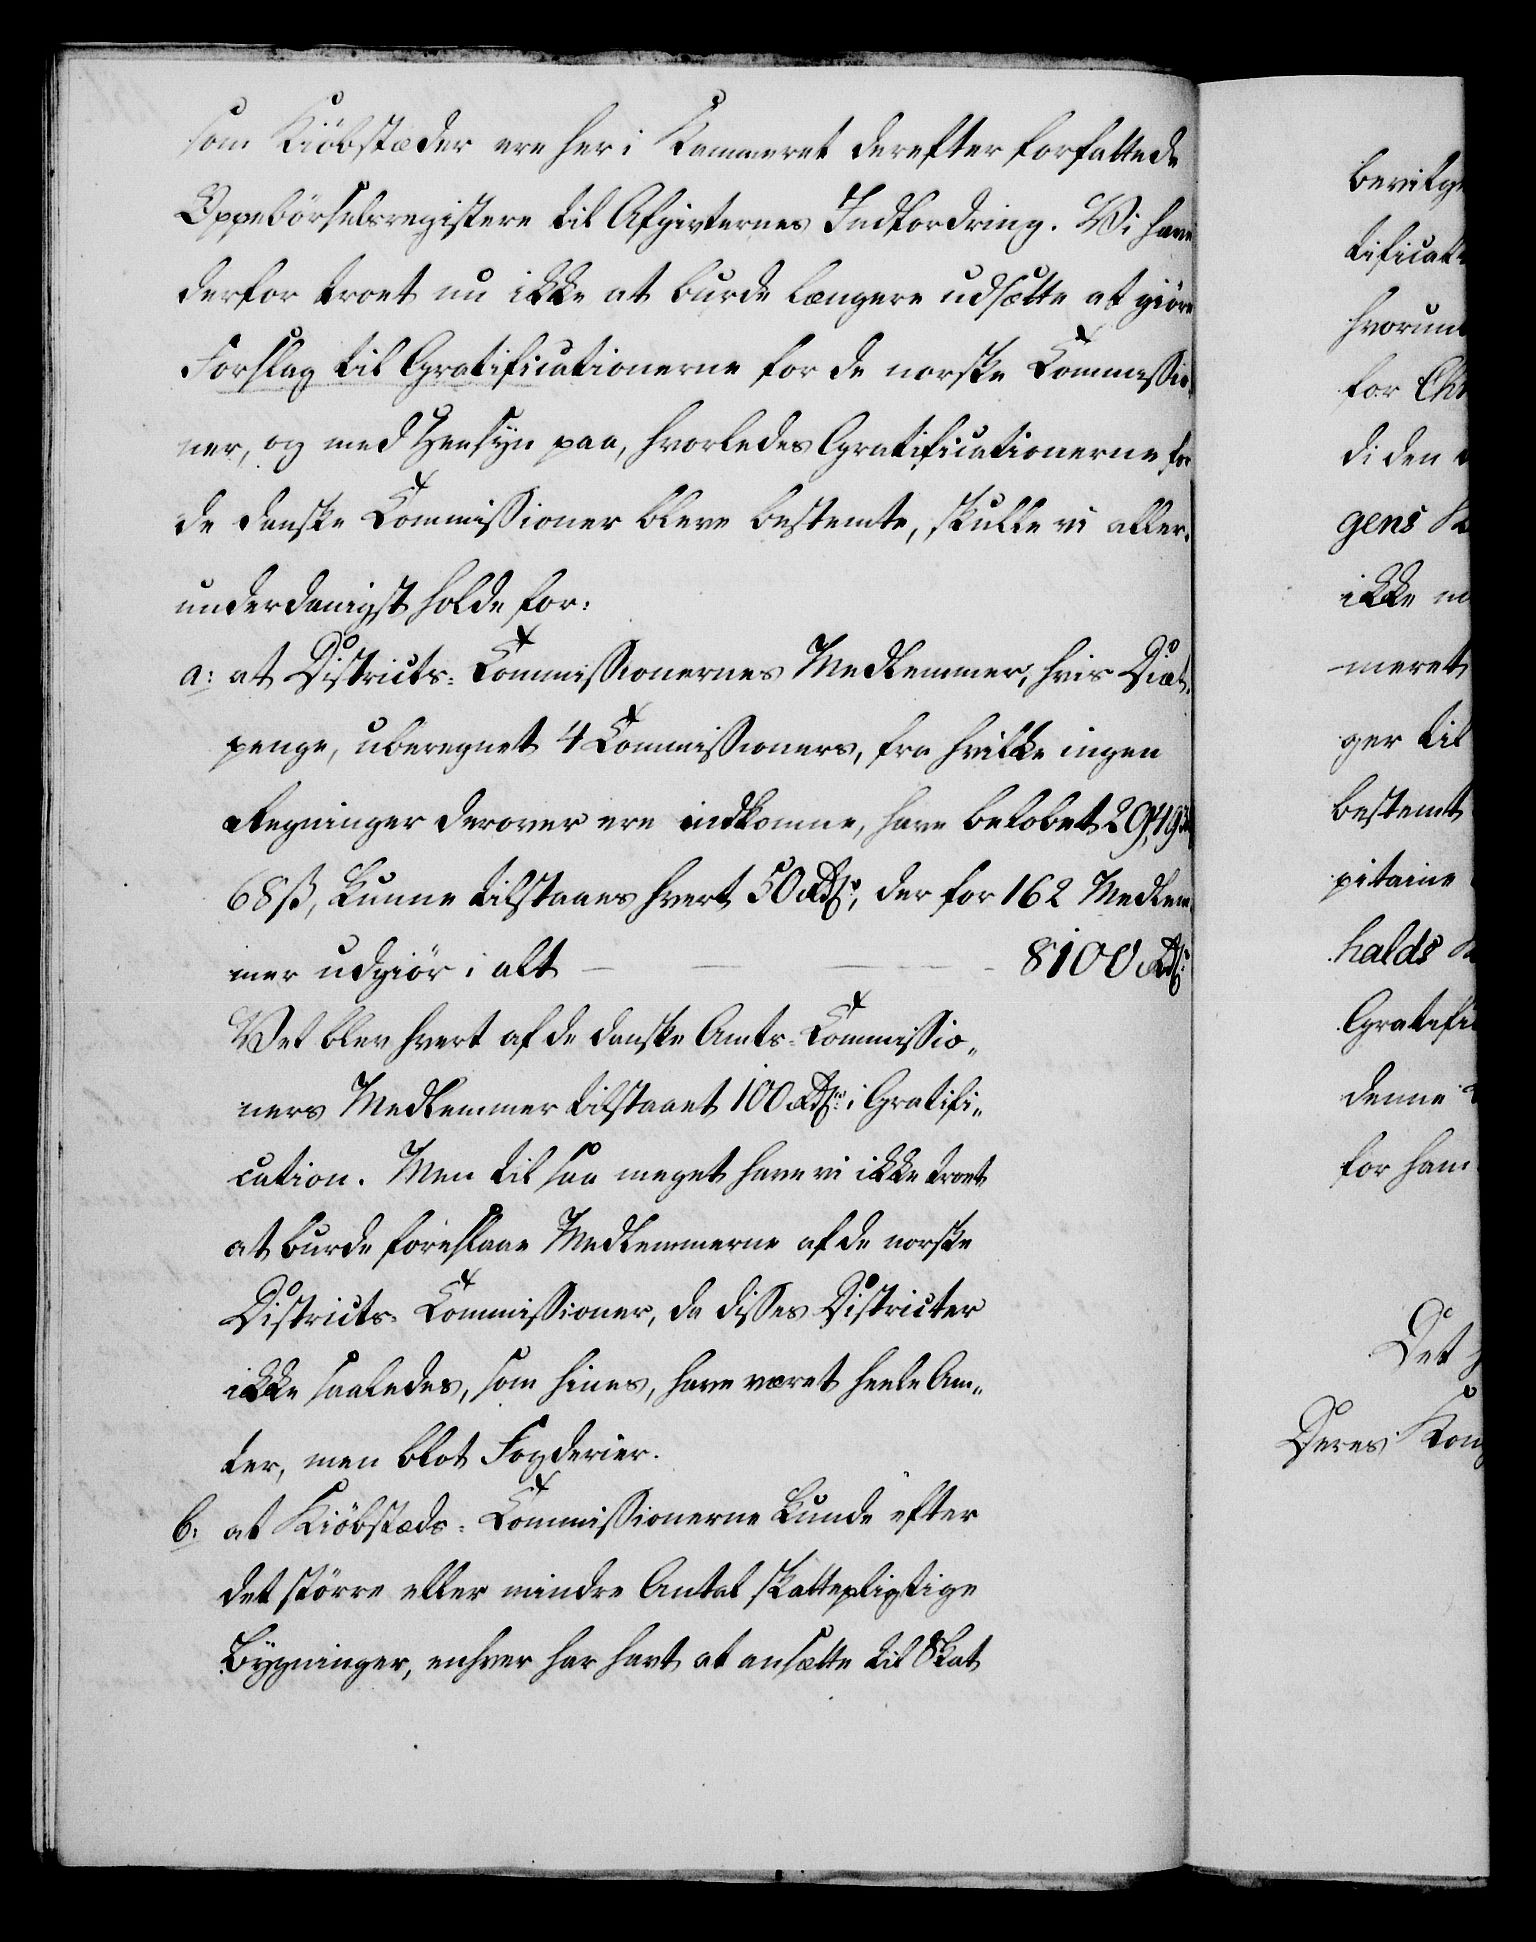 som Kiöbstæder ere her i Kammeret derefter forfattede
Oppebörselsregistere til Afgivternes Indfordring. Vi have
derfor troet nu ikke at burde længere udsætte at giöre
Forslag til Gratificationerne for de norske Commissio-
ner, og med Hensyn paa, hvorledes Gratificationerne for
de danske Commissioner bleve bestemte, skulle vi aller-
underdanigst holde for:
a: at Districts-Commissionernes Medlemmer, hvis Diæt-
penge, uberegnet 4 Commissioners, fra hvilke ingen
Regninger derover ere indkomne, have beløbet
68 ß, kunne tilstaaes hvert 50 Rdlr, der for 162 Medlem-
mer udgiör i alt - - - 8100 Rdlr
Vel blev hvert af de danske Amts-Commissio-
ners Medlemmer tilstaaet 100 Rdlr i Gratifi-
cation. Men til saa meget have vi ikke troet
at burde foreslaae Medlemmerne af de norske
Districts-Commissioner, da disses Districter
ikke saaledes, som hines, have været heele Am-
ter, men blot Fogderier.
b: at Kiöbstæds-Commissionerne kunde efter
det större eller mindre Antal skattepligtige
Bygninger, enhver har havt at ansætte til Skat
bevilge
tificat
hvorun
for Ch
di den
gens K
ikke no
meret
ger til
bestemt
pitaine
halds
Gratifi
denne
for ham
Det
Deres Kong